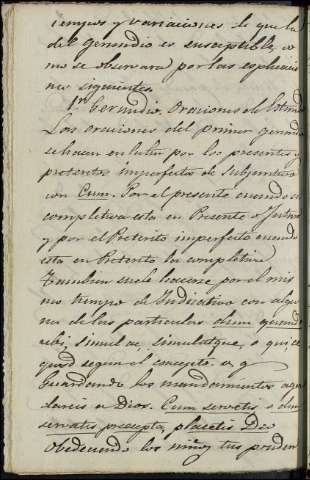 tiempos y variaciones de que la
del Gerundio es susceptible, co
mo se observara por las esplicacio
nes siguientes
1er Gerundio. Oraciones de Estando
Las oraciones del primer gerundio
se hacen en latin por los presentes y
preteritos imperfectos de Subjuntivo
con Cum. Por el presente cuando su
completiva esta en Presente o Futuro
y por el Preterito imperfecto cuando
esta en Preterito la completiva
Tambien suele hacerse por el mis
mo tiempo de Indicativo con algu
na de las particulas dum quando
ubi, simul ac, simulatque, o
quod segun el concepto. v. g
Guardando los mandamientos agra
dareis a Dios. Cum servetis o dum
servatis precepta, placetis Deo
Obedeciendo los niños tus